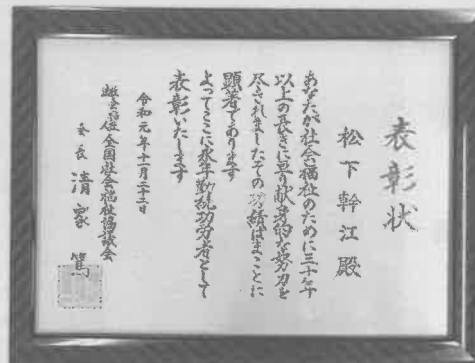 表彰状
松下幹江殿
あなたが社会福祉のために三十年
以上の長きに亘り献身的な努力を
尽されましたその功績はまことに
顕著であります
よってここに永年勤続功労者として
表彰いたします
令和元年十一月二十二日
社会福祉法人全国社会福祉協議会
会長 清家 篤